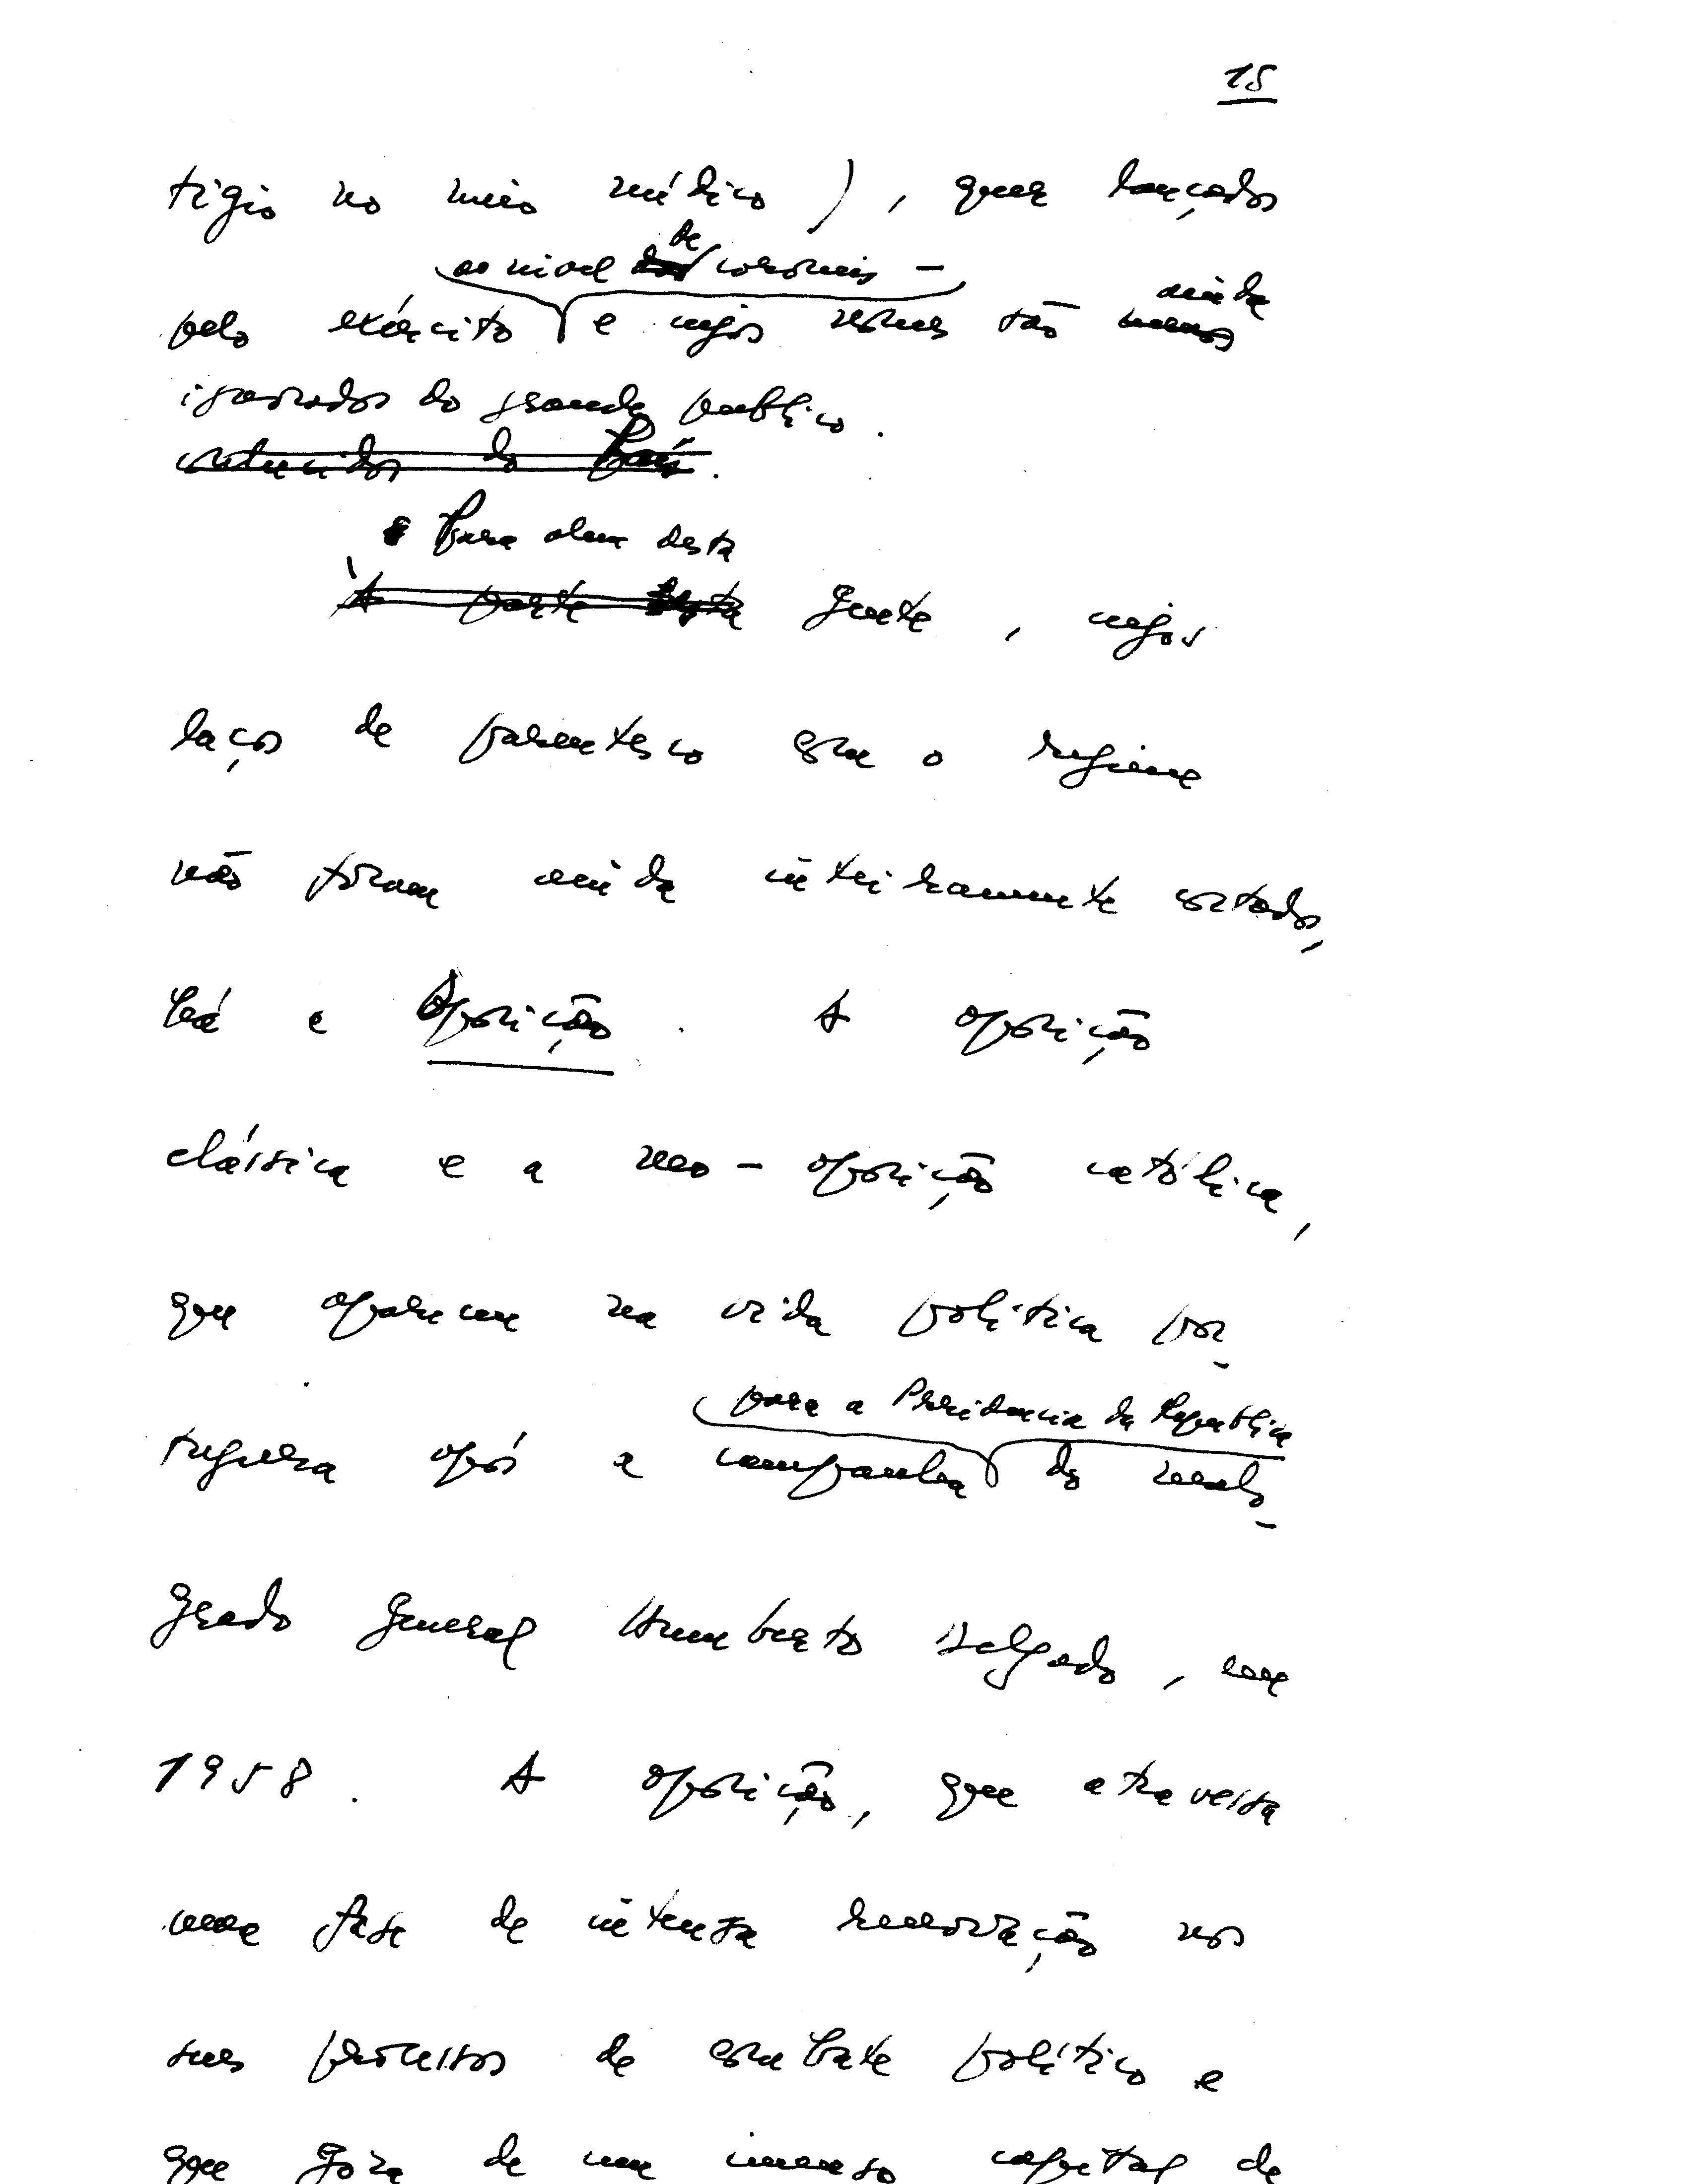 15
tígio no meio médico), quer lançados
ao nivel dos de coroneis -
pelo exército e cujos nomes são menos ainda
ignorados do grande publico.
conhecidos do País.
Para alem desta
À parte esta gente, cujos
laços de parentesco com o regime
não foram ainda inteiramente cortados,
há a Oposição. A oposição
clássica e a neo-oposição católica,
que aparece na vida política por-
tuguesa após a campanha do malo-
para a Presidencia da Republica
grado General Humberto Delgado, em
1958. A oposição, que atravessa
uma fase de intensa renovação nos
seus processos de combate político e
que goza de um imenso capital de